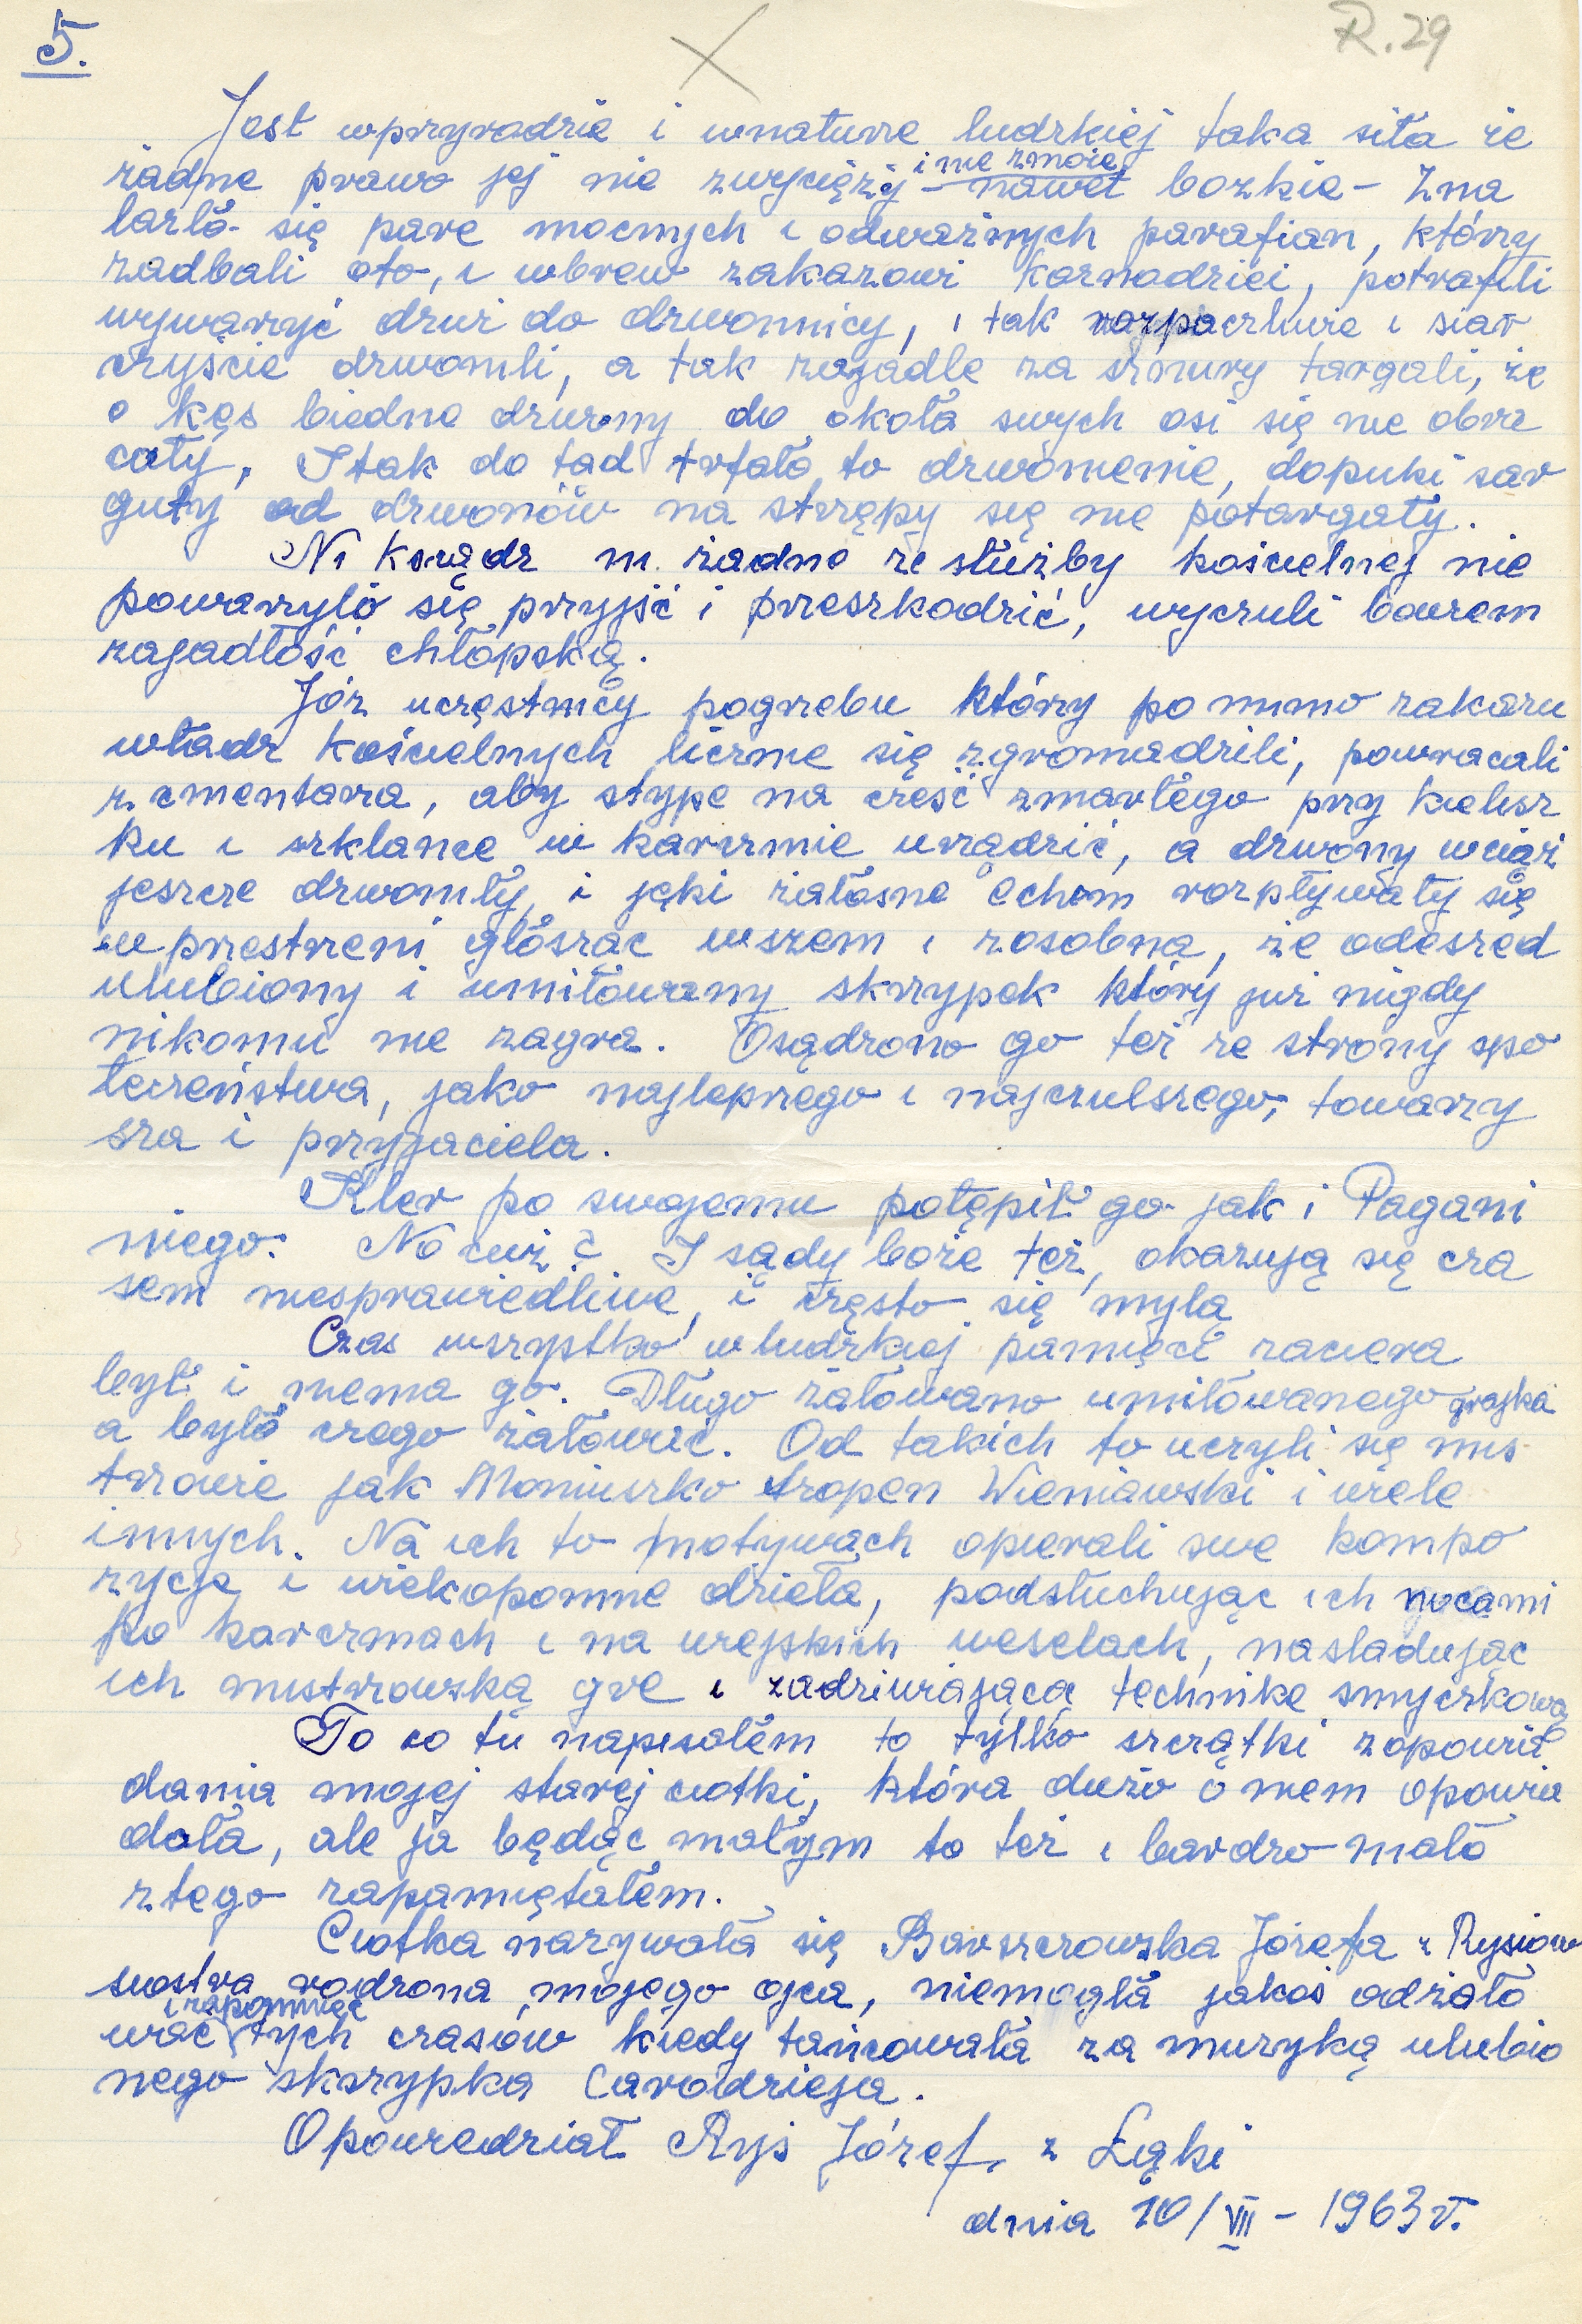 5.
R.29
Jest wprzyrodzie i wnaturze ludzkiej taka siła że
żadne prawo jej nie zwycięży i nie zmoże, – nawet bozkie – Zna
lazło się pare mocnych i odważnych parafian, którzy
zadbali oto, i wbrew zakazowi kaznodziei, potrafili
wyważyć drzwi do dzwonnicy, i tak rozpaczliwie i siar
czyście dzwonili, a tak zajadle za sznury targali, że
o kęs biedne dzwony do okoła swych osi się nie obra
cały, I tak do tad trfało to dzwonienie, dopuki sar
guty od dzwonów na strzępy się nie potargały.
Ni ksiądz ni żadne ze służby kościelnej nie
poważyło się przyjść i przeszkodzić, wyczuli bowiem
zajadłość chłopską.
Jóż uczęstnicy pogrzebu którzy po mimo zakazu
władz kościelnych licznie się zgromadzili, powracali
z cmentarza, aby stype na cześć zmarłego przy kielisz
ku i szklance w karczmie urządzić, a dzwony wciąż
jeszcze dzwoniły, i jęki żałosne echem rozpływały się
w przestrzeni głosząc wszem i zosobna, że odeszed
ulubiony i umiłowany skrzypek który już nigdy
nikomu nie zagra. Osądzono go też ze strony spo
łeczeństwa, jako najlepszego i najczulszego, towarzy
sza i przyjaciela.
Kler po swojemu potępił go jak i Pagani
niego. No cuż? I sądy boże też, okazują się cza
sem niesprawiedliwe, i często się mylą
Czas wszystko w ludzkiej pamięci zaciera
był i niema go. Długo żałowano umiłowanego grajka
a było czego żałować. Od takich to uczyli się mis
trzowie jak Moniuszko Szopen Wieniawski i wiele
innych. Na ich to motywach opierali swe kompo
zycje i wiekopomne dzieła, podsłuchując ich nocami
po karczmach i na wiejskich weselach, nasladując
ich mistrzowską gre i zadziwiającą technike smyczkową
To co tu napisałem to tylko szczątki zopowia
dania mojej starej ciotki, która dużo o niem opowia
dała, ale ja będąc małym to też i bardzo mało
ztego zapamiętałem.
Ciotka nazywała się Barszczowska Józefa z Rysiów
siostra rodzona mojego ojca, niemogła jakoś odżało
wać i zapomnieć tych czasów kiedy tańcowała za muzyką ulubio
nego skrzypka Czarodzieja.
Opowiedział Ryś Józef, z Łąki
dnia 10/VII – 1963 r.